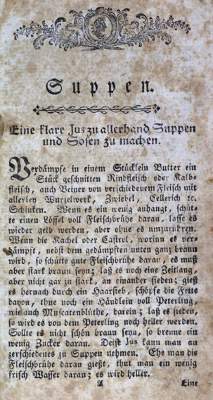 Suppen.
Eine klare Jus zu allerhand Suppen
und Sosen zu machen.
Verdämpfe in einem Stücklein Butter ein
Stück geschnitten Rindfleisch oder Kalb-
fleisch, auch Beiner von verschiedenem Fleisch mit
allerley Wurzelwerk, Zwiebel, Cellerich ic.
Schinken. Wenn es ein wenig anhangt, schütte
einen Löffel voll Fleischbrühe daran, lasse es
wieder gelb werden, aber ohne es umzurühren.
Wenn die Kachel oder Castrol, worinn es ver-
dämpft, nebst dem gedämpften unten ganz braun
wird, so schütte gute Fleischbrühe daran, es muß
aber stark braun seyn; laß es noch eine Zeitlang,
aber nicht gar zu stark, an einander sieden; gieß
es hernach durch ein Haarsieb, schöpfe die Fette
davon, thue noch ein Händlein voll Peterling
wie auch Muscatenblüthe, darein; laß es sieden,
so wird es von dem Peterling noch heller werden.
Sollte es nicht schön braun seyn, so brenne ein
wenig Zucker daran. Diese Jus kann man an
verschiedenes zu Suppen nehmen. Ehe man die
Fleischbrühe daran gießt, thut man ein wenig
frisch Wasser daran; es wird heller.
A Eine